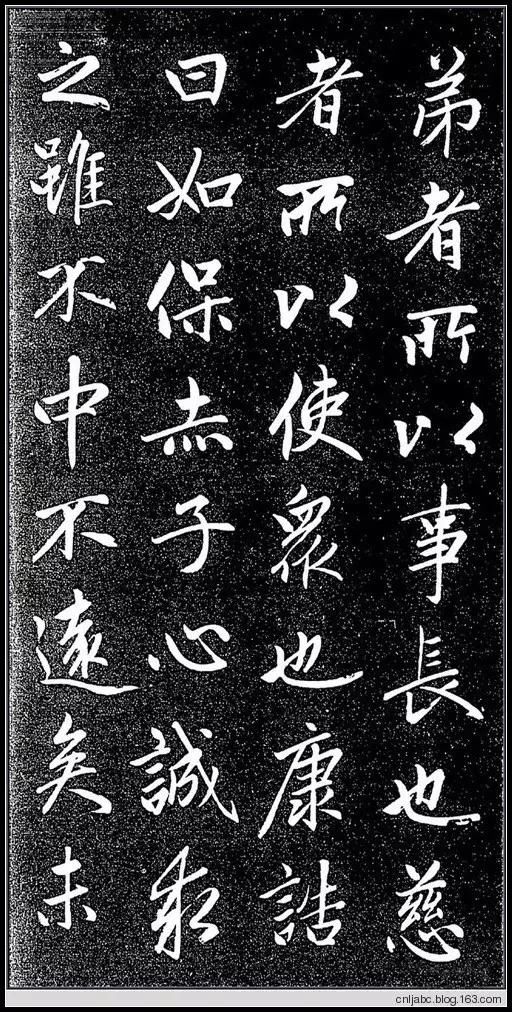 弟者所以事長也慈
者所以使眾也康誥
曰如保赤子心誠求
之雖不中不遠矣未
cnljabc.blog.163.com